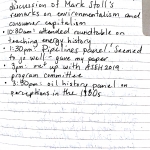 discussion of Mark Stoll's
remarks on environmentalism and
consumer capitalism
• 10:30am: attended roundtable on
teaching energy history
• 1:30pm: Pipelines panel! Seemed
to go well - gave my paper
• 3pm: met up with ASEH 2019
program committee
• 3:30pm: oil history panel on
perceptions in the 1980s